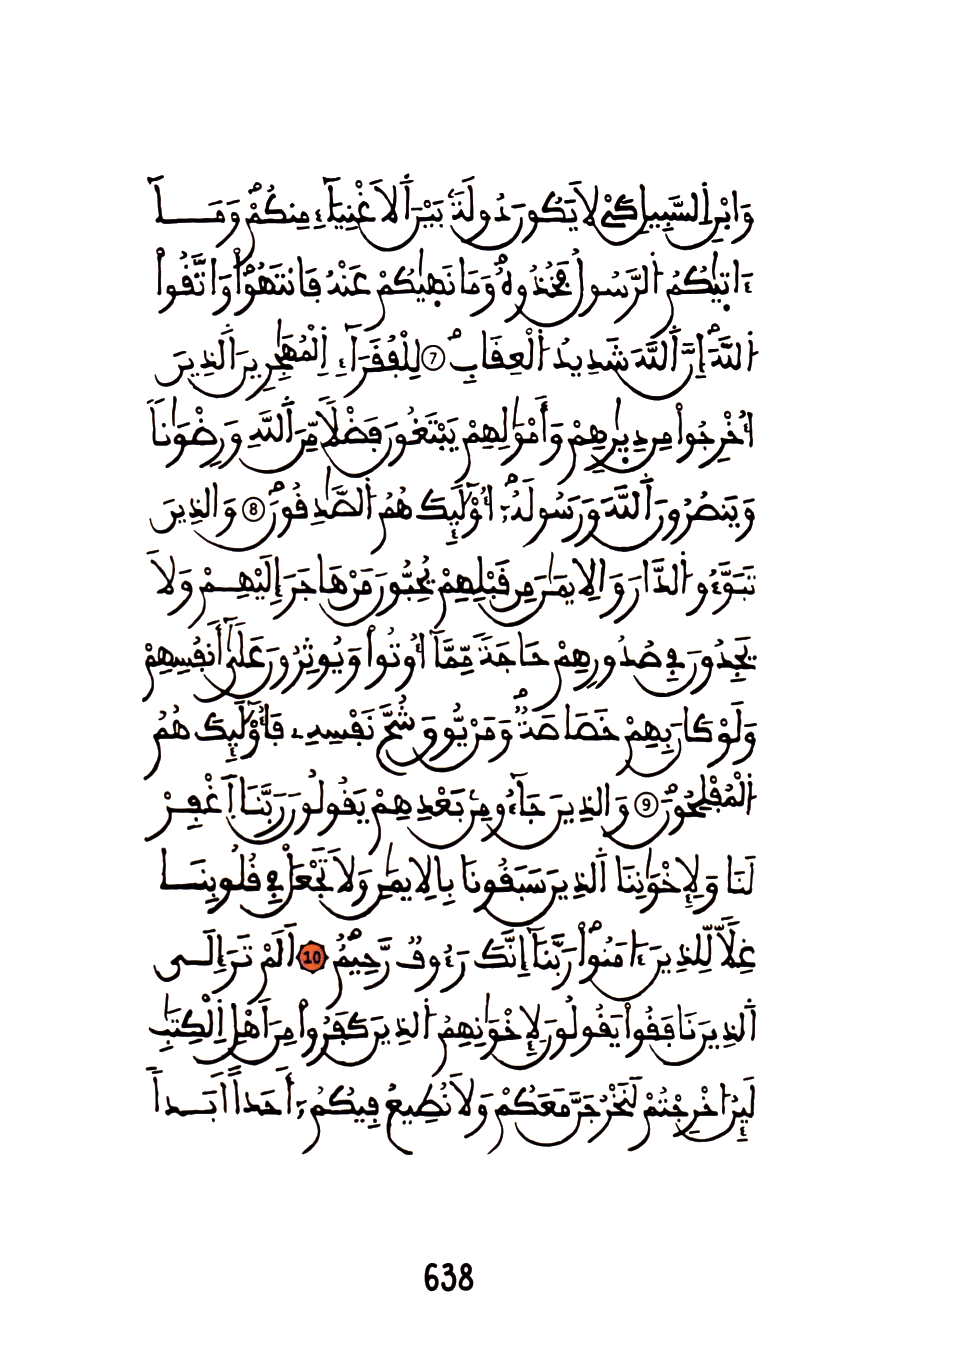 وَابْنِ اِ۬لسَّبِيلِ كَےْ لَا يَكُونَ دُولَةَۢ بَيْنَ اَ۬لَاغْنِيَآءِ مِنكُمْۖ وَمَآ
ءَات۪يٰكُمُ اُ۬لرَّسُولُ فَخُذُوهُۖ وَمَا نَه۪يٰكُمْ عَنْهُ فَانتَهُواْۖ وَاتَّقُواْ
اُ۬للَّهَۖ إِنَّ اَ۬للَّهَ شَدِيدُ اُ۬لْعِقَابِۖ ⑦ لِلْفُقَرَآءِ اِ۬لْمُهَٰجِرِينَ اَ۬لذِينَ
أُخْرِجُواْ مِن دِيٰ۪رِهِمْ وَأَمْوَٰلِهِمْ يَبْتَغُونَ فَضْلاٗ مِّنَ اَ۬للَّهِ وَرِضْوَٰناٗ
وَيَنصُرُونَ اَ۬للَّهَ وَرَسُولَهُۥٓۖ أُوْلَٰٓئِكَ هُمُ اُ۬لصَّٰدِقُونَۖ ⑧ وَالذِينَ
تَبَوَّءُو اُ۬لدَّارَ وَالِايمَٰنَ مِن قَبْلِهِمْ يُحِبُّونَ مَنْ هَاجَرَ إِلَيْهِمْ وَلَا
يَجِدُونَ فِے صُدُورِهِمْ حَاجَةٗ مِّمَّآ أُوتُواْ وَيُوثِرُونَ عَلَىٰٓ أَنفُسِهِمْ
وَلَوْ كَانَ بِهِمْ خَصَاصَةٞۖ وَمَنْ يُّوقَ شُحَّ نَفْسِهِۦ فَأُوْلَٰٓئِكَ هُمُ
اُ۬لْمُفْلِحُونَۖ ⑨ وَالذِينَ جَآءُو مِنۢ بَعْدِهِمْ يَقُولُونَ رَبَّنَا اَ۪غْفِرْ
لَنَا وَلِإِخْوَٰنِنَا اَ۬لذِينَ سَبَقُونَا بِالِايمَٰنِ وَلَا تَجْعَلْ فِے قُلُوبِنَا
غِلّاٗ لِّلذِينَ ءَامَنُواْۖ رَبَّنَآ إِنَّكَ رَءُوفٞ رَّحِيمٌۖ 10 اَلَمْ تَرَ إِلَى
اَ۬لذِينَ نَافَقُواْ يَقُولُونَ لِإِخْوَٰنِهِمُ اُ۬لذِينَ كَفَرُواْ مِنَ اَهْلِ اِ۬لْكِتَٰبِ
لَئِنُ ا۟خْرِجْتُمْ لَنَخْرُجَنَّ مَعَكُمْ وَلَا نُطِيعُ فِيكُمُۥٓ أَحَداً اَبَداٗ
638